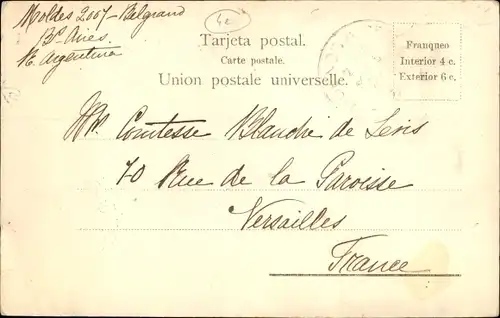 Moldes 2007 - Belgrano
Bs Aires.
R. Argentina
4e
Tarjeta postal.
Carte postale.
Union postale universelle.
Franqueo
Interior 4 c.
Exterior 6 c.
Comtesse Blanche de
70 Rue de la Paroisse
Versailles
France